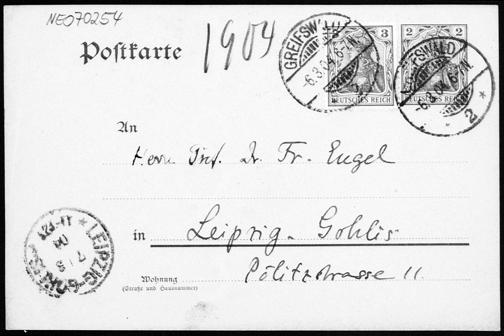 NEO70254
Postkarte
1904
3
2
DEUTSCHES REICH
DEUTSCHES REICH
GREIFSWALD
-6.3.04.6-7N.
GREIFSWALD
-6.3.04.6-7N.
* 2 *
An
Herrn Prof. Dr. Fr. Engel
in Leipzig-Gohlis
Wohnung
(Straße und Hausnummer)
Pölitzstrasse 11.
LEIPZIG-GOHLIS
7 3
04